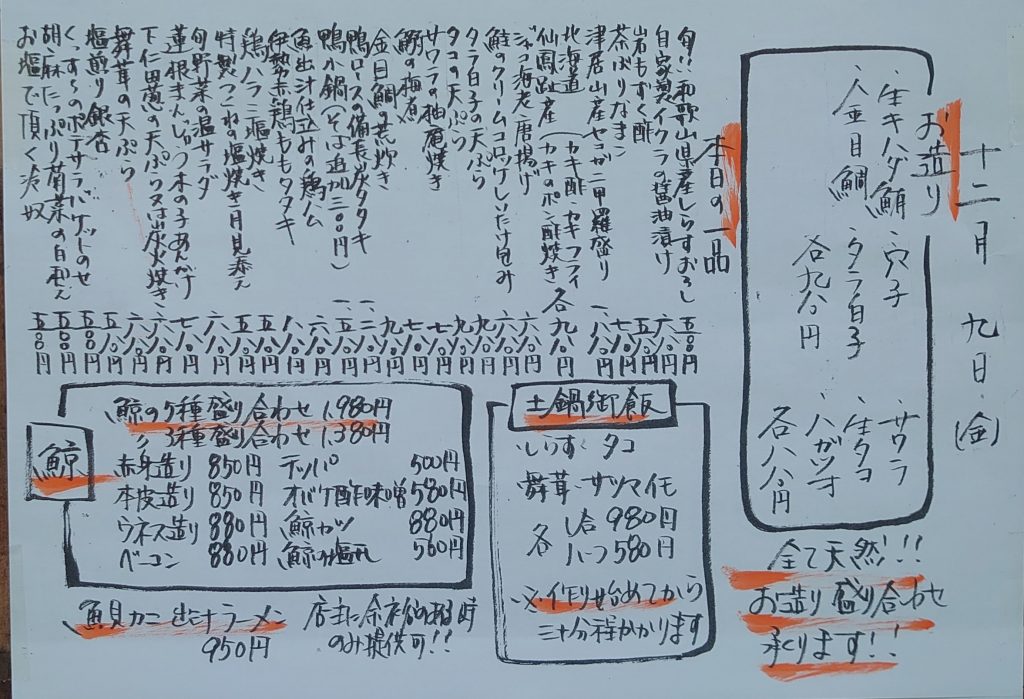 十二月 九日 (金)
お造り
・生キハダ鮪 ・穴子 ・サワラ
・金目鯛 ・タラ白子 ・生タコ
・ハガツオ
各九八〇円 各八八〇円
全て天然!!
お造り盛り合わせ
承ります!!
本日の一品
旬!!和歌山県産しらすおろし 五八〇円
自家製イクラの醤油漬け
岩もずく酢 五八〇円
茶ぶりなまこ 七八〇円
津居山産セコガニ甲羅盛り
北海道
仙鳳趾産(カキ酢・カキフライ
(カキのポン酢焼き 各九八〇円
ジャコ海老唐揚げ 六八〇円
鮭のクリームコロッケしいたけ包み
タラ白子の天ぷら 九八〇円
タコの天ぷら
サワラの柚庵焼き
鰯の梅煮
金目鯛の荒炊き
鴨ロースの備長炭タタキ
鴨小鍋(そば追加三〇〇円)
魚出汁仕込みの鶏ハム
伊勢赤鶏ももタタキ
鶏ハラミ塩焼き
特製つくねの塩焼き月見添え
旬野菜の温サラダ
蓮根まんじゅう木の子あんかけ
下仁田葱の天ぷら又は炭火焼き
舞茸の天ぷら
塩煎り銀杏 五〇〇円
くんすらのポテサラバゲットのせ
胡麻たっぷり菊菜の白和え
お塩で頂く冷奴
土鍋御飯
・しらす ・タコ
・舞茸 ・サツマイモ
各 一合 980円
ハーフ 580円
※作り始めてから
三十分程かかります
鯨
鯨の5種盛り合わせ 1,980円
〃 3種盛り合わせ 1,380円
赤身造り 850円 テッパ 500円
本皮造り 850円 オバケ酢味噌 580円
ウネス造り 880円 鯨カツ 880円
ベーコン 880円 鯨の塩 560円
魚貝カニ出汁ラーメン 950円
店主に余裕のある時
のみ提供可!!